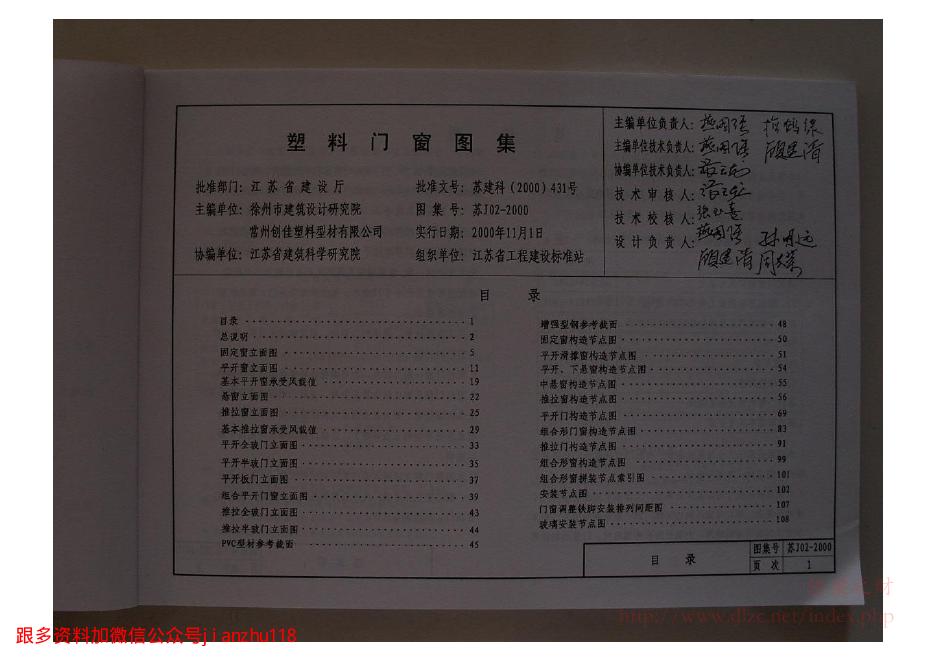 塑料门窗图集
批准部门: 江苏省建设厅
批准文号: 苏建科(2000)431号
主编单位: 徐州市建筑设计研究院
图集号: 苏J02-2000
常州创佳塑料型材有限公司
实行日期: 2000年11月1日
协编单位: 江苏省建筑科学研究院
组织单位: 江苏省工程建设标准站
主编单位负责人:
主编单位技术负责人:
协编单位技术负责人:
技术审核人:
技术校核人:
设计负责人:
目 录
目录 1
总说明 2
固定窗立面图 5
平开窗立面图 11
基本平开窗承受风载值 19
悬窗立面图 22
推拉窗立面图 25
基本推拉窗承受风载值 29
平开全玻门立面图 33
平开半玻门立面图 35
平开板门立面图 37
组合平开门窗立面图 39
推拉全玻门立面图 43
推拉半玻门立面图 44
PVC型材参考截面 45
增强型钢参考截面 48
固定窗构造节点图 50
平开滑撑窗构造节点图 51
平开、下悬窗构造节点图 54
中悬窗构造节点图 55
推拉窗构造节点图 56
平开门构造节点图 69
组合形门窗构造节点图 83
推拉门构造节点图 91
组合形窗构造节点图 99
组合形窗拼装节点索引图 101
安装节点图 102
门窗调整铁脚安装排列间距图 107
玻璃安装节点图 108
目 录
图集号 苏J02-2000
页次 1
http://www.dlzc.net/index.php
跟多资料加微信公众号jianzhu118